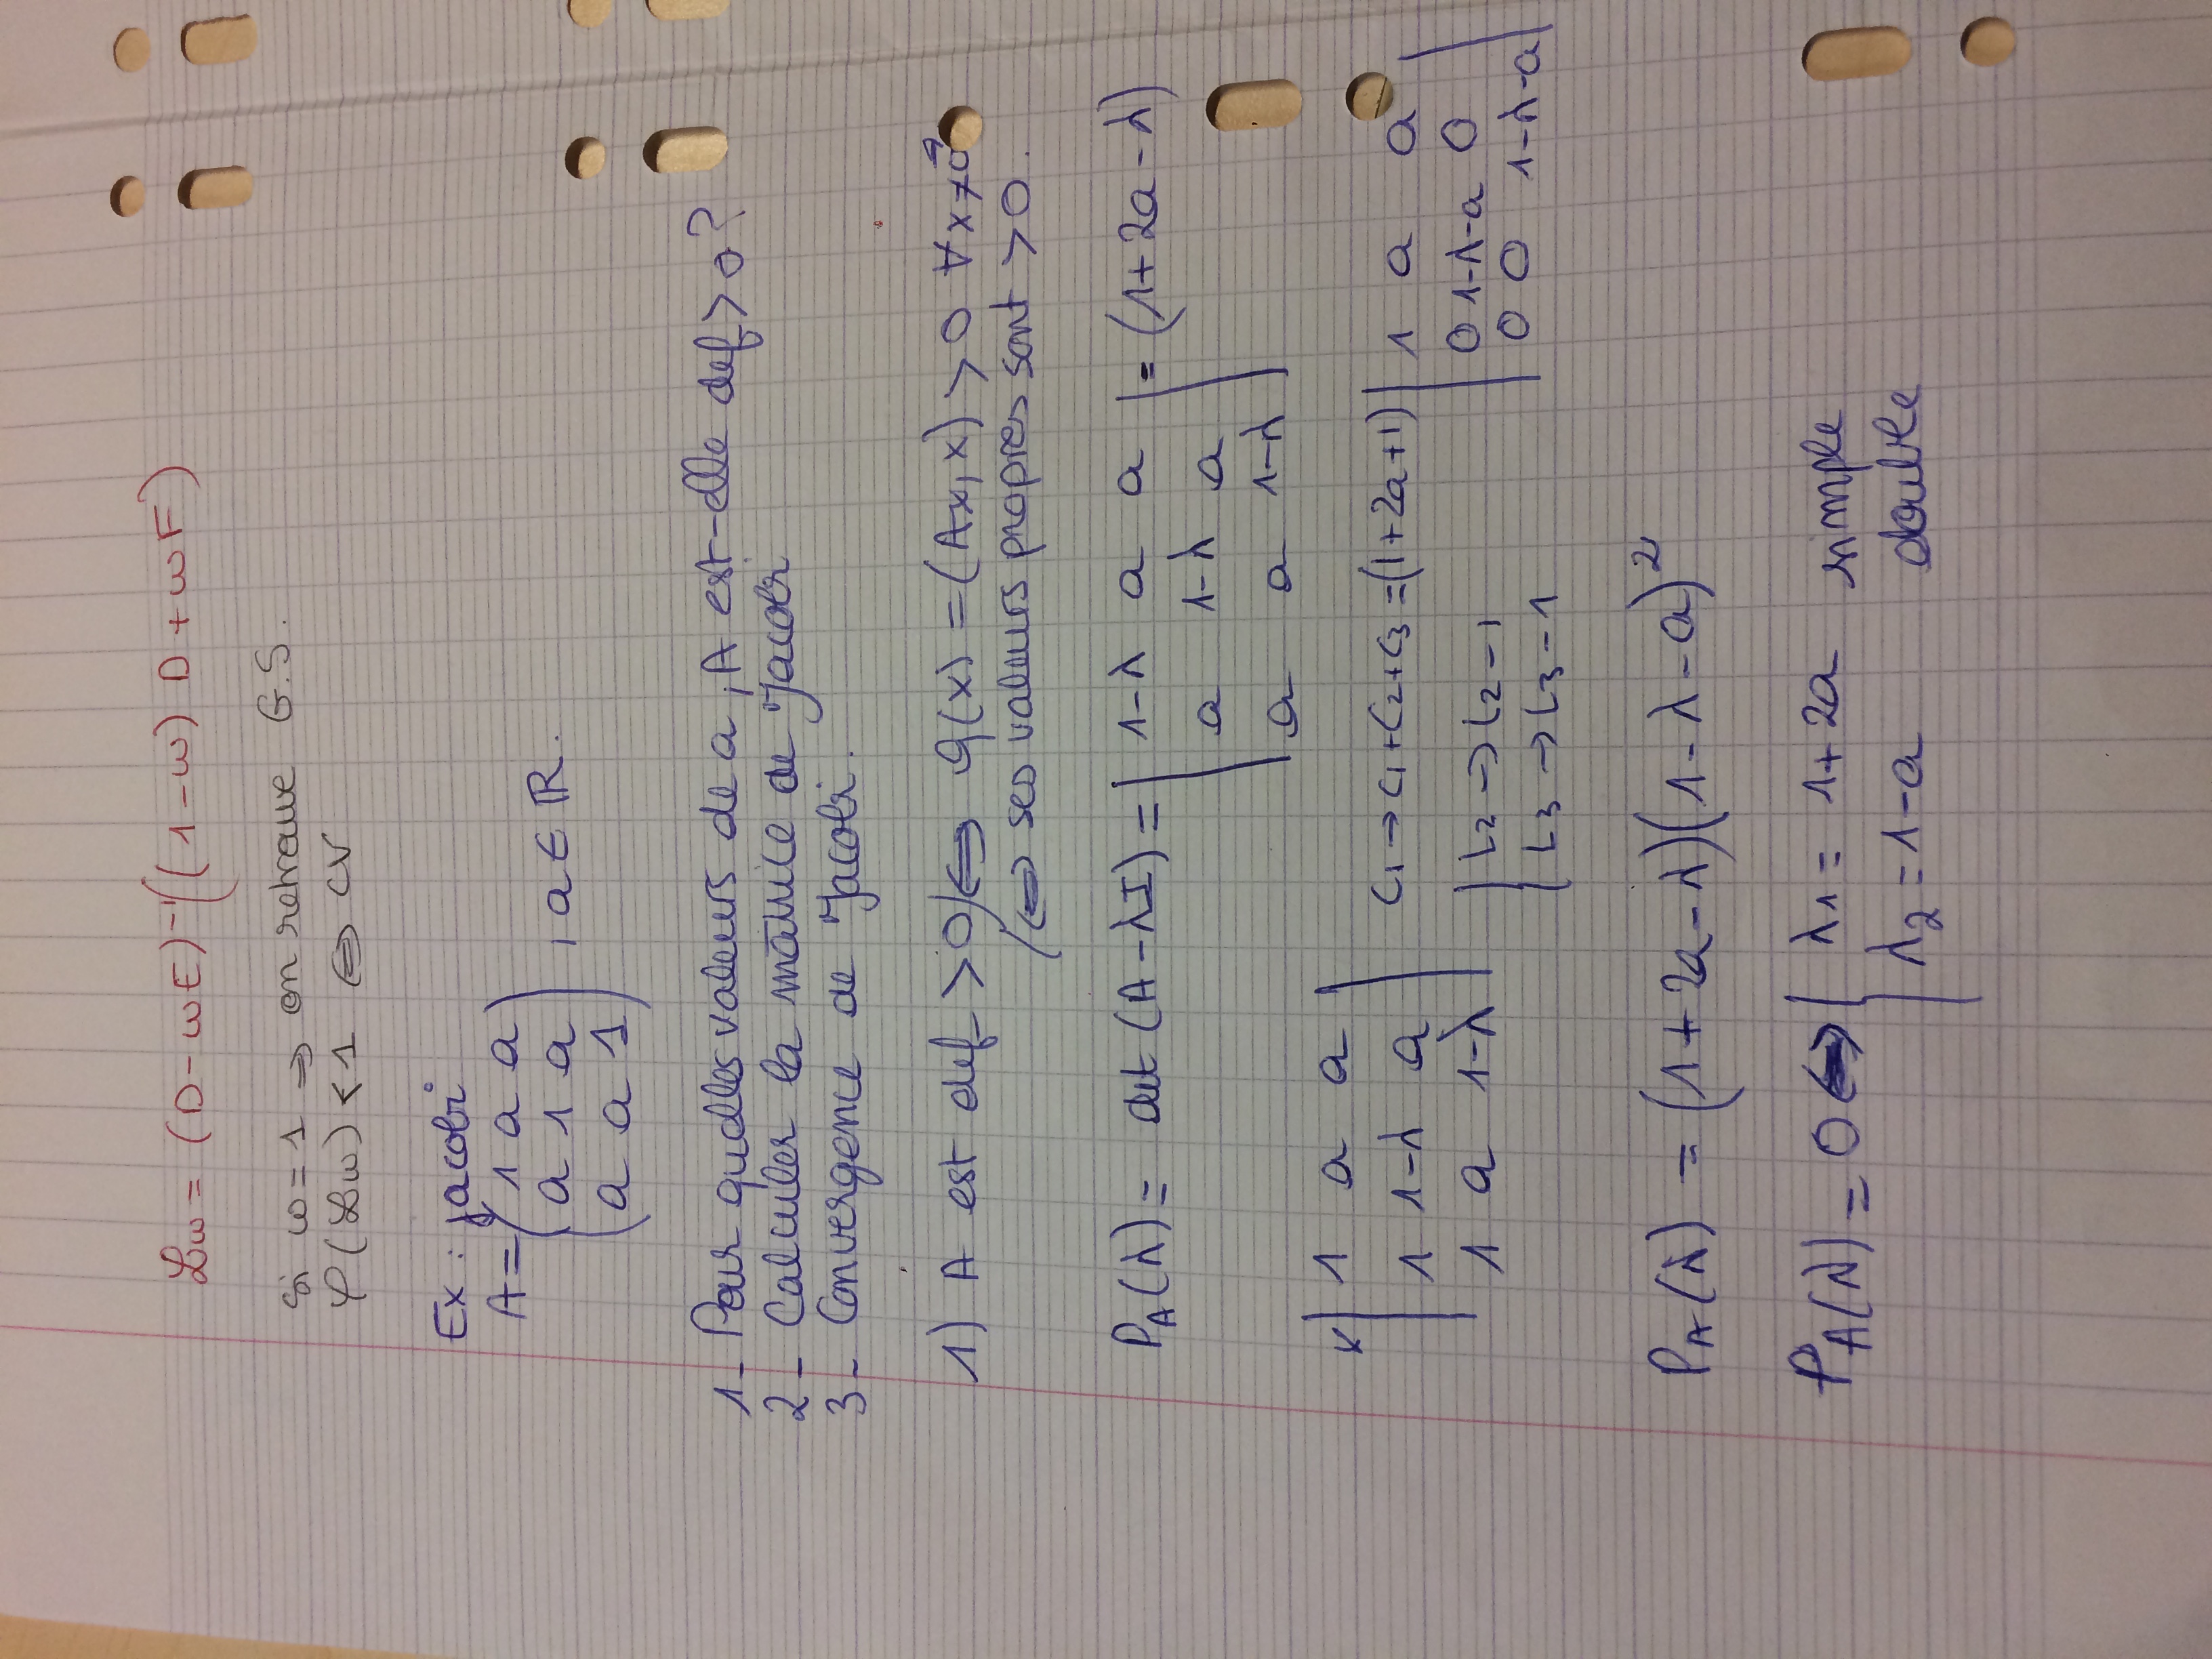 ℒω = (D-ωE)⁻¹((1-ω) D+ωF)
si ω=1 ⇒ on retrouve G.S.
φ(ℒω)<1 ⇔ CV
Ex : jacobi
A=(1 a a
a 1 a) , a ∈ ℝ.
a a 1
1- Pour quelles valeurs de a, A est-elle def>0?
2- Calculer la matrice de Jacobi
3- Convergence de Jacobi.
1) A est def >0 ⇔ q(x) =(Ax,x) >0 ∀x≠0⃗
⇔ ses valeurs propres sont >0.
P_A(λ)= det (A-λI)= | 1-λ a a | = (1+2a-λ)
a 1-λ a
a a 1-λ
x | 1 a a |
1 1-λ a
1 a 1-λ
C₁→C₁+C₂+C₃ =(1+2a+1) | 1 a a |
L2→L2-1 0 1-λ-a 0
L3→L3-1 0 0 1-λ-a
P_A(λ) = (1+2a-λ)(1-λ-a)²
P_A(λ)=0⇔ { λ1= 1+2a simple
λ2=1-a double